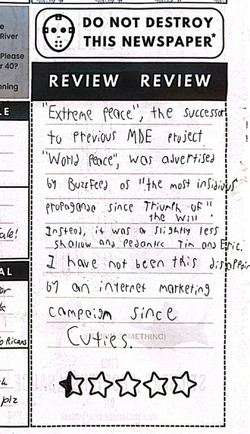 DO NOT DESTROY
THIS NEWSPAPER*
REVIEW REVIEW
"Extreme Peace", the successor
to previous MDE project
"World Peace", was advertised
by BuzzFeed as "the most insidious
propaganda since Triumph of
the Will".
Instead, it was a slightly less
shallow and pedantic Tim and Eric.
I have not been this
by an internet marketing
campaign since
Cuties.
River
Please
40?